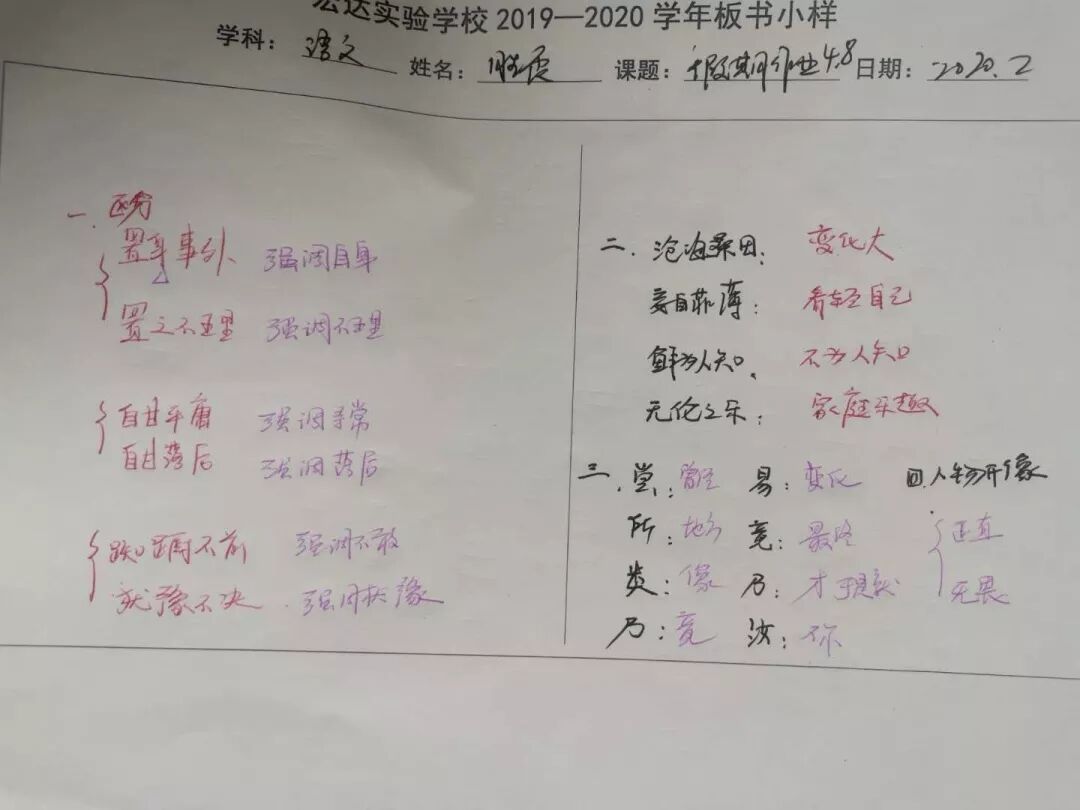 宏达实验学校2019—2020学年板书小样
学科：语文 姓名： 课题：假期作业4.8 日期：2020.2
一.区分
置身事外 强调自身
置之不理 强调不理
自甘平庸 强调寻常
自甘落后 强调落后
踟蹰不前 强调不敢
犹豫不决 强调犹豫
二.沧海桑田： 变化大
妄自菲薄： 看轻自己
鲜为人知、 不为人知
天伦之乐： 家庭乐趣
三.尝：曾经 易：变化
所：地方 竟：最终
类：像 乃：才
乃：竟 汝：你
四.人物形像
正直
无畏